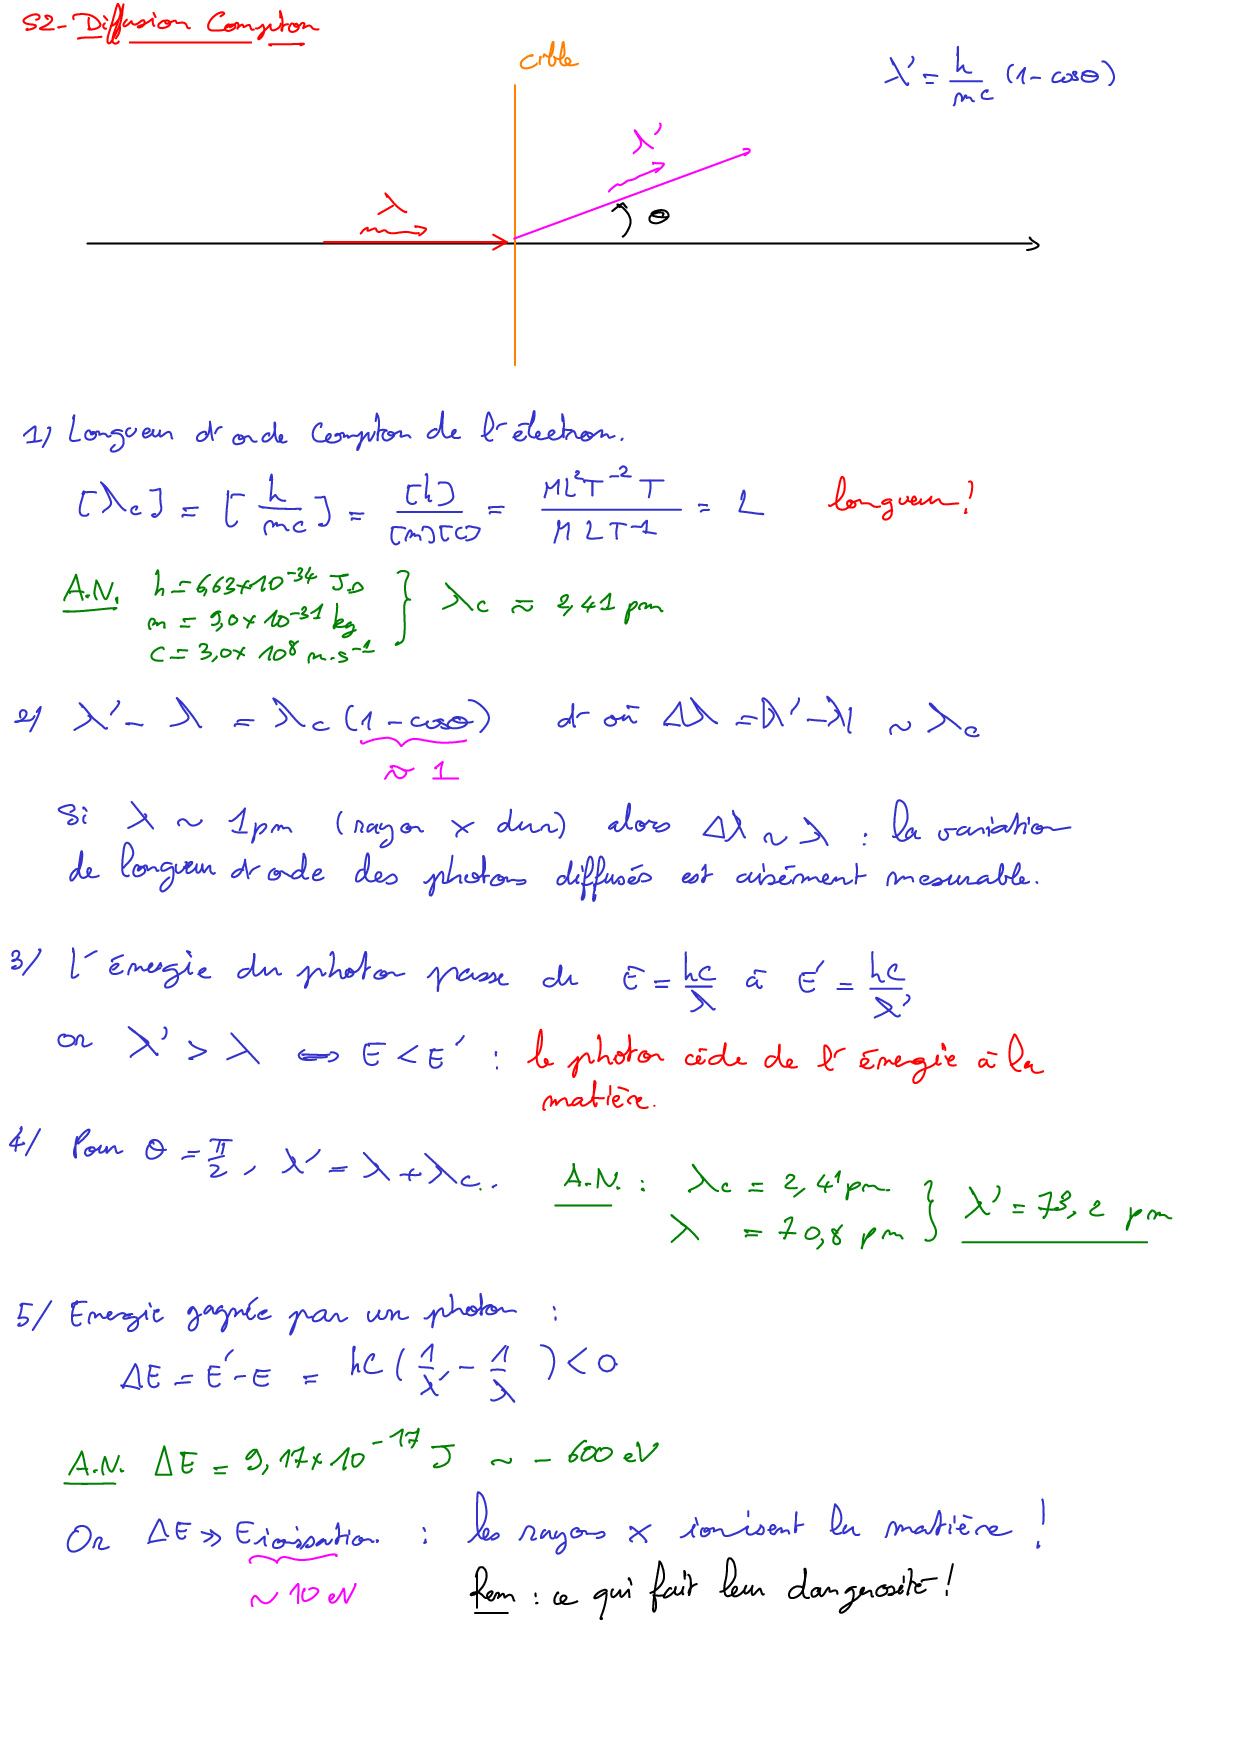 S2- Diffusion Compton
cible
λ' = h/mc (1 - cosθ)
λ'
λ
θ
1/ Longueur d'onde Compton de l'électron.
[λc] = [h/mc] = [h]/[m][c] = ML²T⁻²T/MLT⁻¹ = L longueur!
A.N. h = 6,63×10⁻³⁴ J.s
m = 9,0×10⁻³¹ kg } λc ≈ 2,41 pm
c = 3,0×10⁸ m.s⁻¹
2/ λ' - λ = λc (1 - cosθ) d'où Δλ = |λ' - λ| ~ λc
≈ 1
Si λ ~ 1pm (rayon X dur) alors Δλ ~ λ : la variation
de longueur d'onde des photons diffusés est aisément mesurable.
3/ l'énergie du photon passe de E = hc/λ à E' = hc/λ'
or λ' > λ ⟺ E < E' : le photon cède de l'énergie à la
matière.
4/ Pour θ = π/2, λ' = λ + λc. A.N. : λc = 2,41 pm
λ = 70,8 pm } λ' = 73,2 pm
5/ Energie gagnée par un photon :
ΔE = E' - E = hc (1/λ' - 1/λ) < 0
A.N. ΔE = 9,17×10⁻¹⁷ J ~ - 600 eV
Or ΔE ≫ Eionisation : les rayons X ionisent la matière !
~ 10 eV
Rem : ce qui fait leur dangerosité !